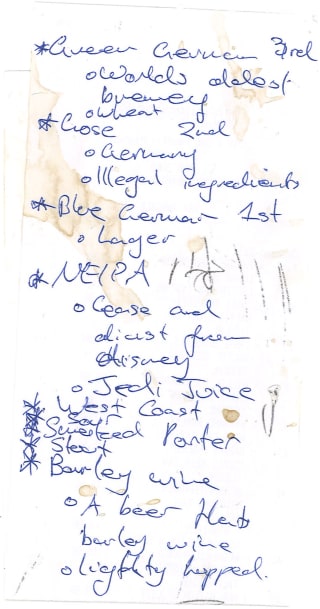 *Green German 3rd
o Worlds oldest
brewery
o wheat
* Gose 2nd
o Germany
o Illegal ingredients
* Blue German 1st
o Lager
* NEIPA
o Cease and
dicist from
disney
o Jedi Juice
* West Coast
* Sour
* Smoked Porter
* Stout
* Barley wine
o A beer that's
barley wine
o Lightly hopped.